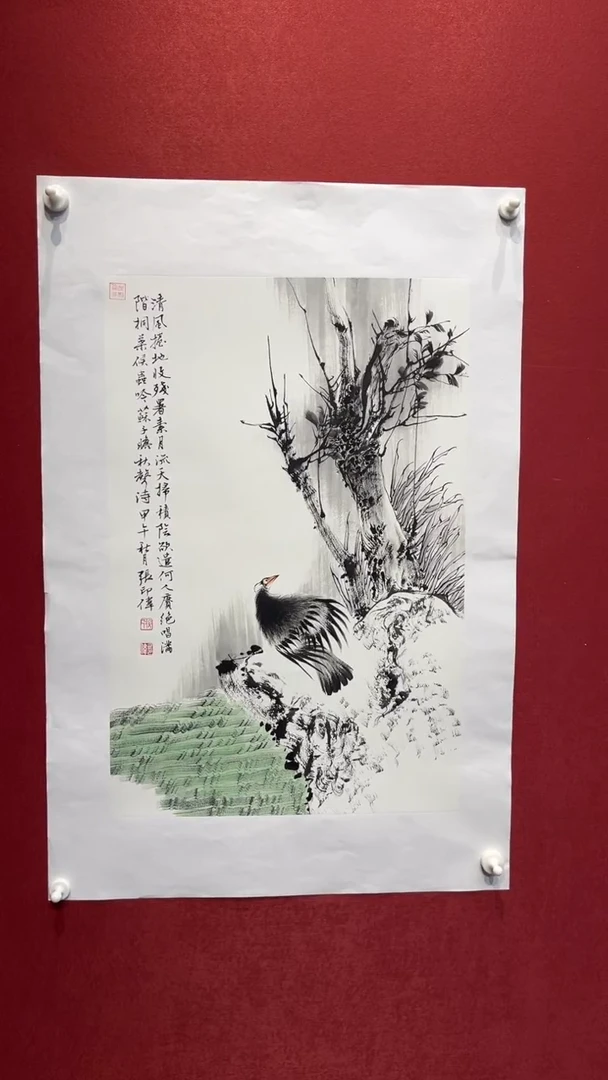 清風捲地收殘暑素月流天掃積陰欲遣何人賡絕唱滿
階桐葉候蟲吟蘇子瞻秋聲詩甲午秋月張印偉